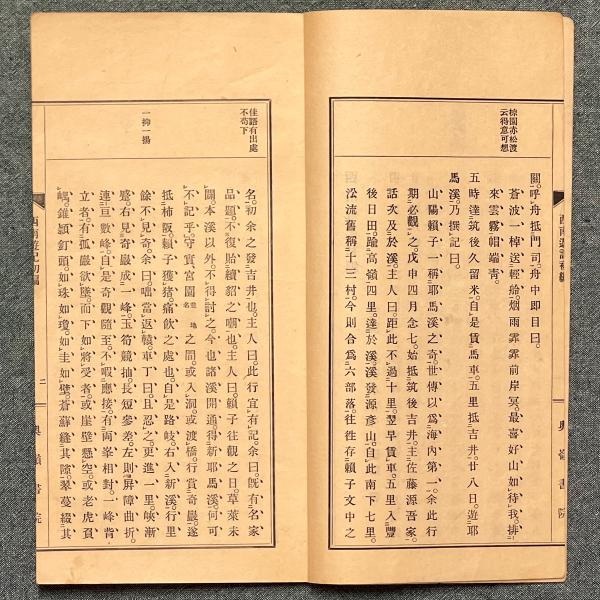 棕園赤松渡
云得意可想
關。呼舟抵門司。舟中即目曰。
蒼波一棹送輕舲。烟雨霏霏前岸冥。最喜好山如待我。排
來雲霧帽端青。
五時達筑後久留米。自是賃馬車。五里抵吉井。廿八日。遊耶
馬溪。乃撰記曰。
山陽賴子一稱耶馬溪之奇。世傳以爲海內第一。余此行
期必觀之。戊申四月念七。始抵筑後吉井。主佐藤源吾家。
話次及於溪。主人曰。距此不過十里。翌早賃車。五里入豐
後日田。踰高嶺四里。達於溪。溪發源彥山。自此南下七里。
沿流舊稱十三村。今則合爲六部落。往往存賴子文中之
佳語有出處
不苟下
一抑一揚
名。初余之發吉井也。主人曰。此行宜有記。余曰。既有名家
品題。不復貽續貂之嘲也。主人曰。賴子往觀之日。草萊未
闢。本溪以外。不得討之。今也諸溪開通。得新耶馬溪。何可
不記乎。守實宮園地名之間。或入洞。或渡橋。行賞奇巖。遂
抵柿阪。賴子獲猪。痛飲之處也。自是路岐右入新溪。行里
餘。不見奇。余曰。咄當返轅。車丁曰。且忍之。更進一里。峽漸
蹙。右見奇巖成一峰。玉筍競抽。長短參差。左則屏障曲折。
連亘數峰。自是奇觀隨至。不暇應接。有兩峯相對。一峰背
立者。有孤巖欲墜。而下如將受者。或崖壁懸空。或老虎負
嵎。錐穎釘頭。如珠如瓊。如圭如璧。蒼蘚縫其隙。翠蔓綴其
二